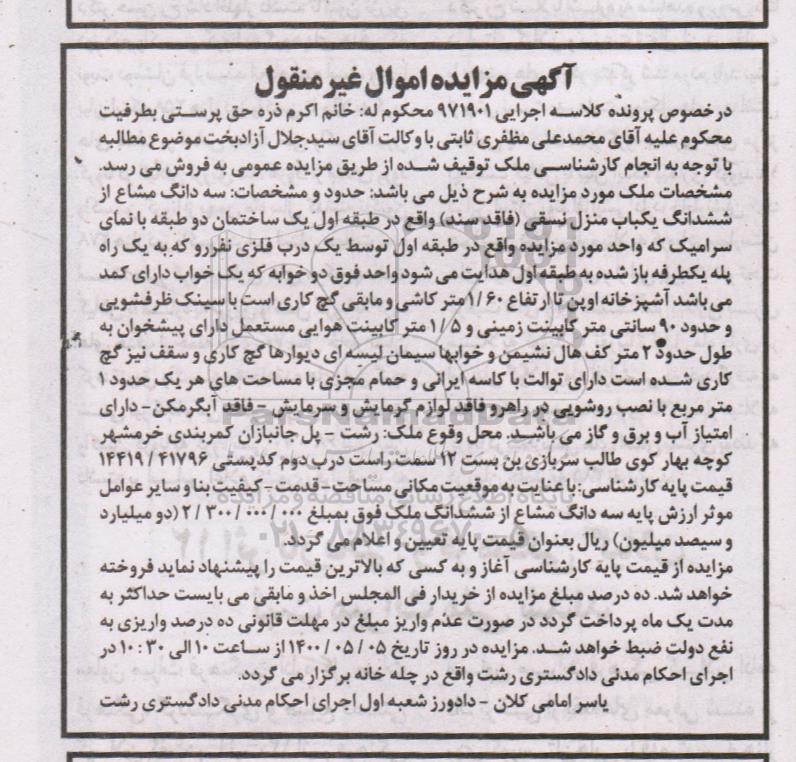 آگهی مزایده اموال غیر منقول
در خصوص پرونده کلاسه اجرایی ۹۷۱۹۰۱ محکوم له: خانم اکرم ذره حق پرستی بطرفیت
محکوم علیه آقای محمدعلی مظفری ثابتی با وکالت آقای سیدجلال آزادبخت موضوع مطالبه
با توجه به انجام کارشناسی ملک توقیف شده از طریق مزایده عمومی به فروش می رسد.
مشخصات ملک مورد مزایده به شرح ذیل می باشد: حدود و مشخصات: سه دانگ مشاع از
ششدانگ یکباب منزل نسقی (فاقد سند) واقع در طبقه اول یک ساختمان دو طبقه با نمای
سرامیک که واحد مورد مزایده واقع در طبقه اول توسط یک درب فلزی نفررو که به یک راه
پله یکطرفه باز شده به طبقه اول هدایت می شود واحد فوق دو خوابه که یک خواب دارای کمد
می باشد آشپزخانه اوپن تا ارتفاع ۱/۶۰ متر کاشی و مابقی گچ کاری است با سینک ظرفشویی
و حدود ۹۰ سانتی متر کابینت زمینی و ۱/۵ متر کابینت هوایی مستعمل دارای پیشخوان به
طول حدود ۲ متر کف هال نشیمن و خوابها سیمان لیسه ای دیوارها گچ کاری و سقف نیز گچ
کاری شده است دارای توالت با کاسه ایرانی و حمام مجزی با مساحت های هر یک حدود ۱
متر مربع با نصب روشویی در راهرو فاقد لوازم گرمایش و سرمایش - فاقد آبگرمکن- دارای
امتیاز آب و برق و گاز می باشد. محل وقوع ملک: رشت - پل جانبازان کمربندی خرمشهر
کوچه بهار کوی طالب سربازی بن بست ۱۲ سمت راست درب دوم کدپستی ۴۱۷۹۶ / ۱۴۴۱۹
قیمت پایه کارشناسی: با عنایت به موقعیت مکانی مساحت - قدمت - کیفیت بنا و سایر عوامل
موثر ارزش پایه سه دانگ مشاع از ششدانگ ملک فوق بمبلغ ۲/۳۰۰/۰۰۰/۰۰۰ (دو میلیارد
و سیصد میلیون) ریال بعنوان قیمت پایه تعیین و اعلام می گردد.
مزایده از قیمت پایه کارشناسی آغاز و به کسی که بالاترین قیمت را پیشنهاد نماید فروخته
خواهد شد. ده درصد مبلغ مزایده از خریدار فی المجلس اخذ و مابقی می بایست حداکثر به
مدت یک ماه پرداخت گردد در صورت عدم واریز مبلغ در مهلت قانونی ده درصد واریزی به
نفع دولت ضبط خواهد شد. مزایده در روز تاریخ ۰۵/۰۵/۱۴۰۰ از ساعت ۱۰ الی ۱۰:۳۰ در
اجرای احکام مدنی دادگستری رشت واقع در چله خانه برگزار می گردد.
یاسر امامی کلان - دادورز شعبه اول اجرای احکام مدنی دادگستری رشت
ParsNamadData
پایگاه اطلاع رسانی مناقصه و مزایده